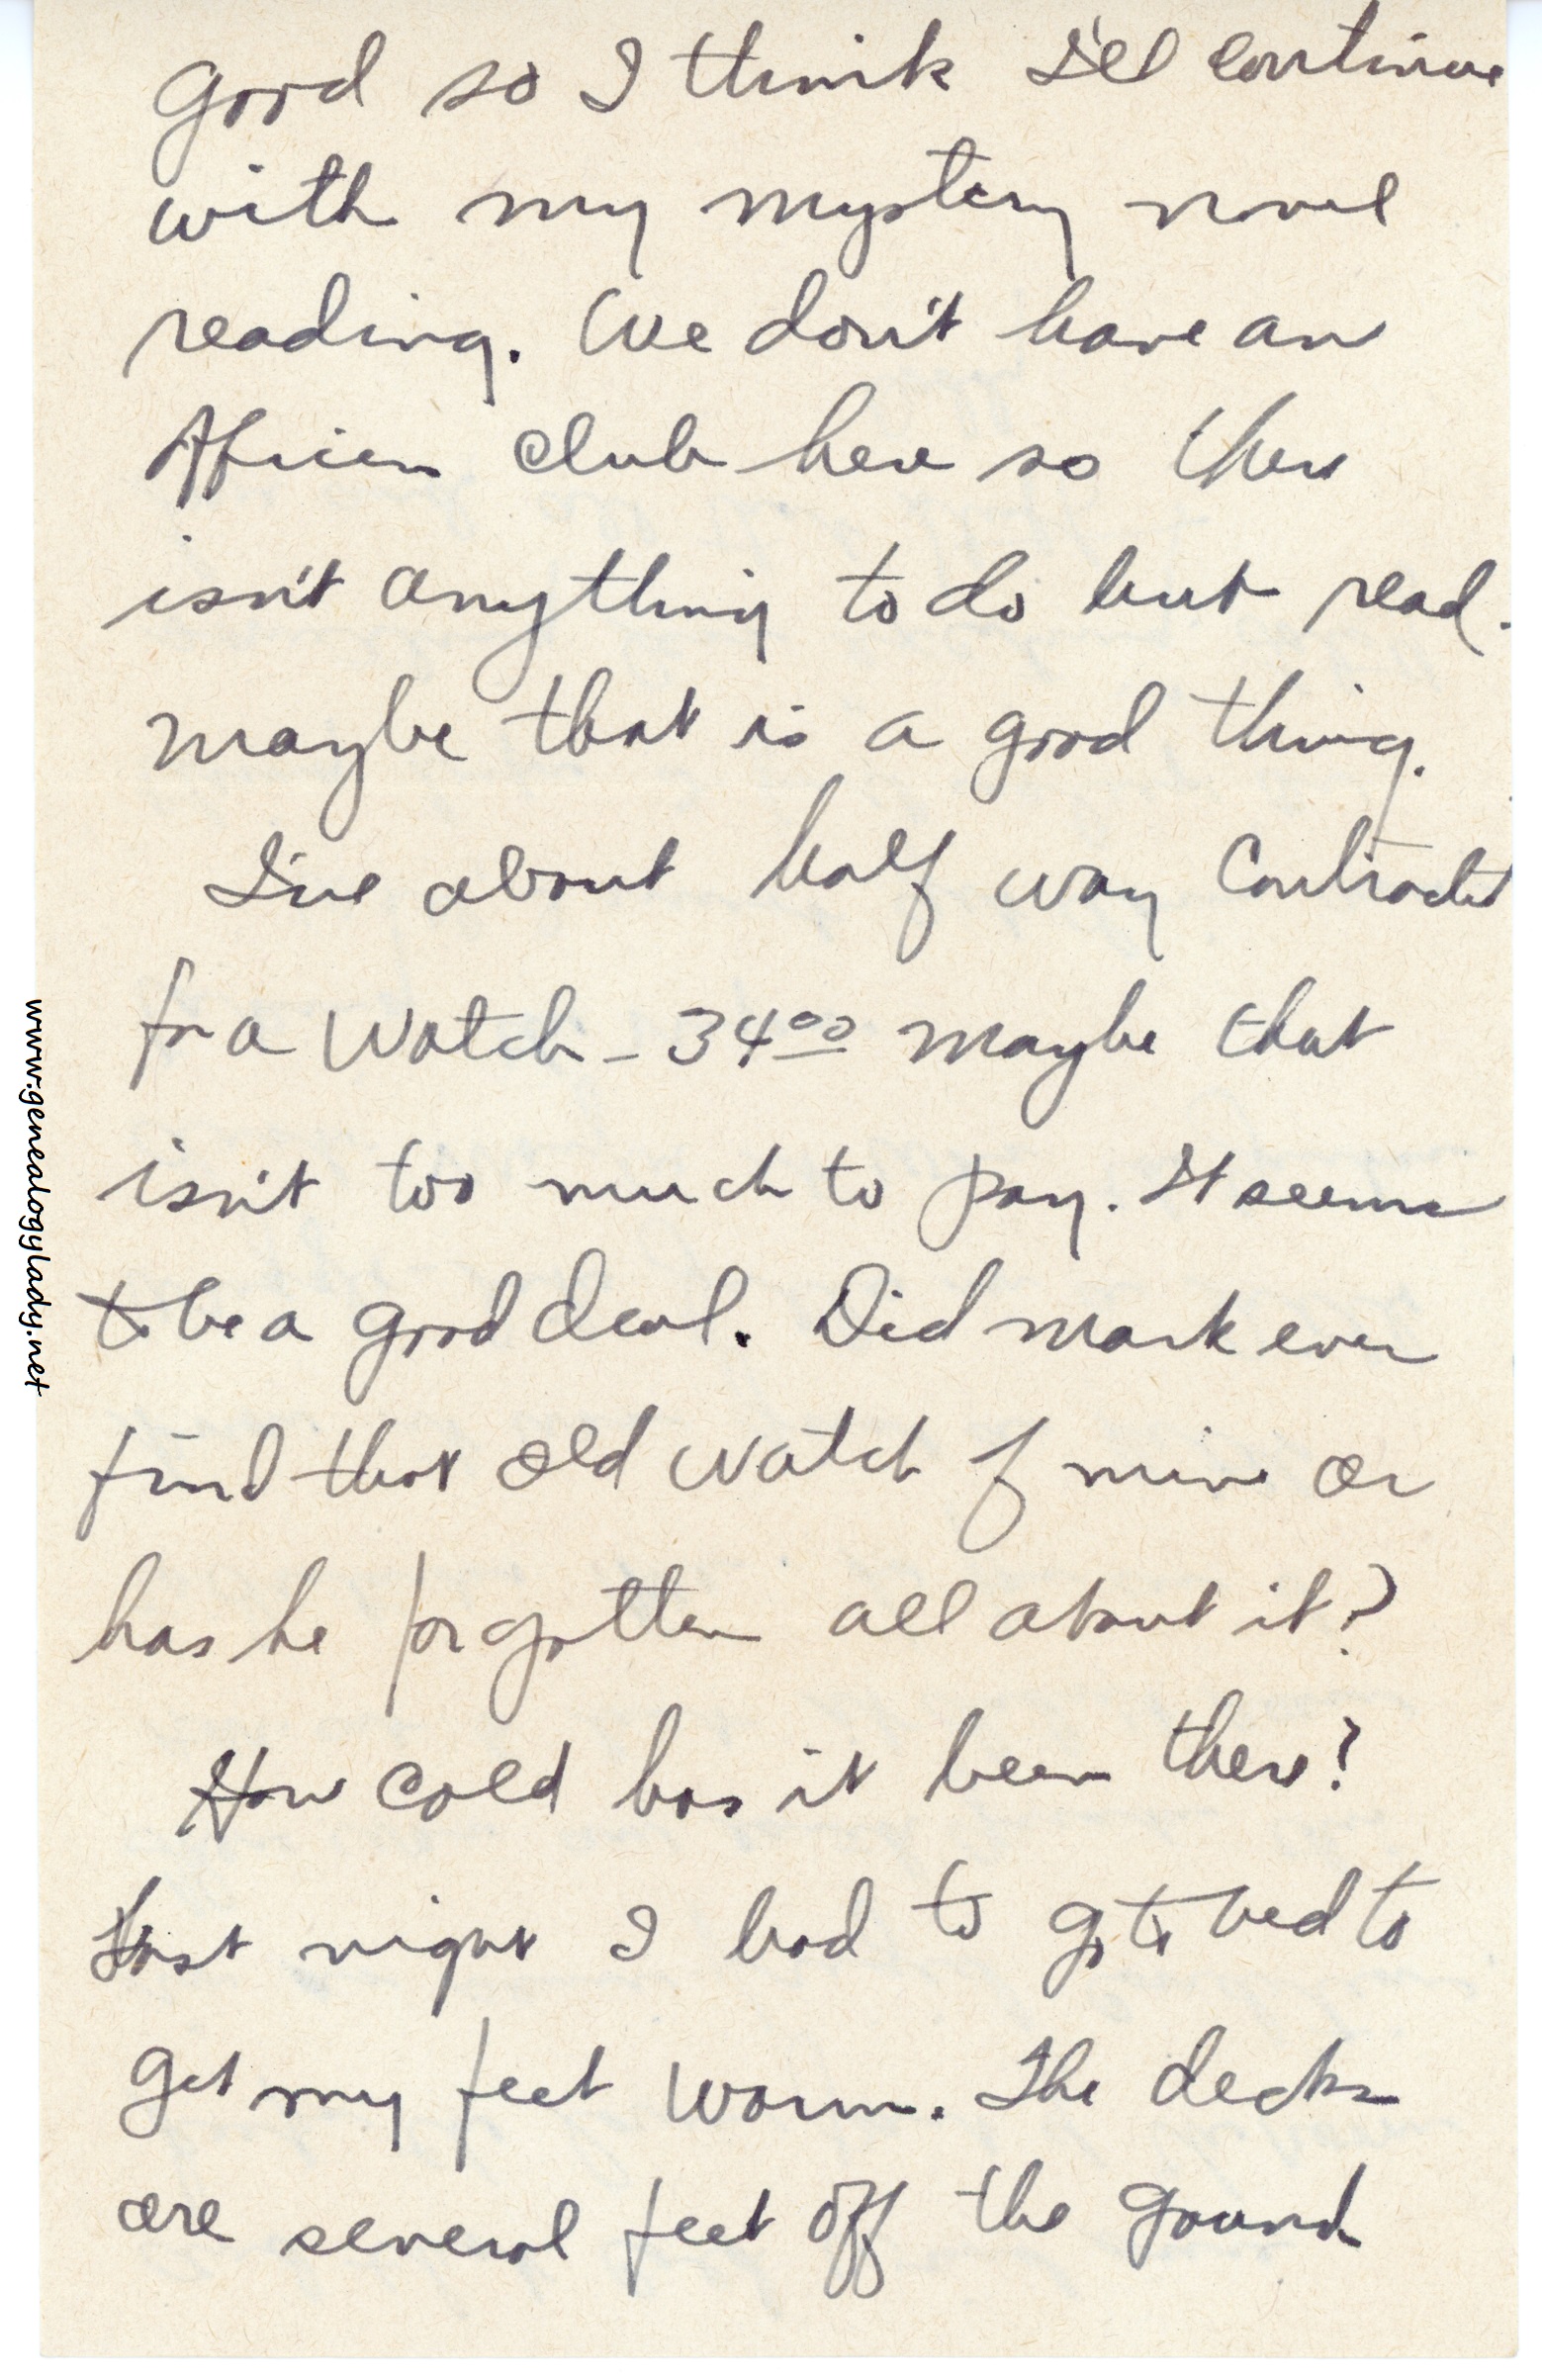 good so I think I'll continue
with my mystery novel
reading. We don't have an
Officers Club here so there
isn't anything to do but read.
Maybe that is a good thing.
I've about half way contracted
for a watch - 34.00 maybe that
isn't too much to pay. It seems
to be a good deal. Did Mark ever
find that old watch of mine or
has he forgotten all about it?
How cold has it been there?
Last night I had to go to bed to
get my feet warm. The decks
are several feet off the gound
www.genealogylady.net